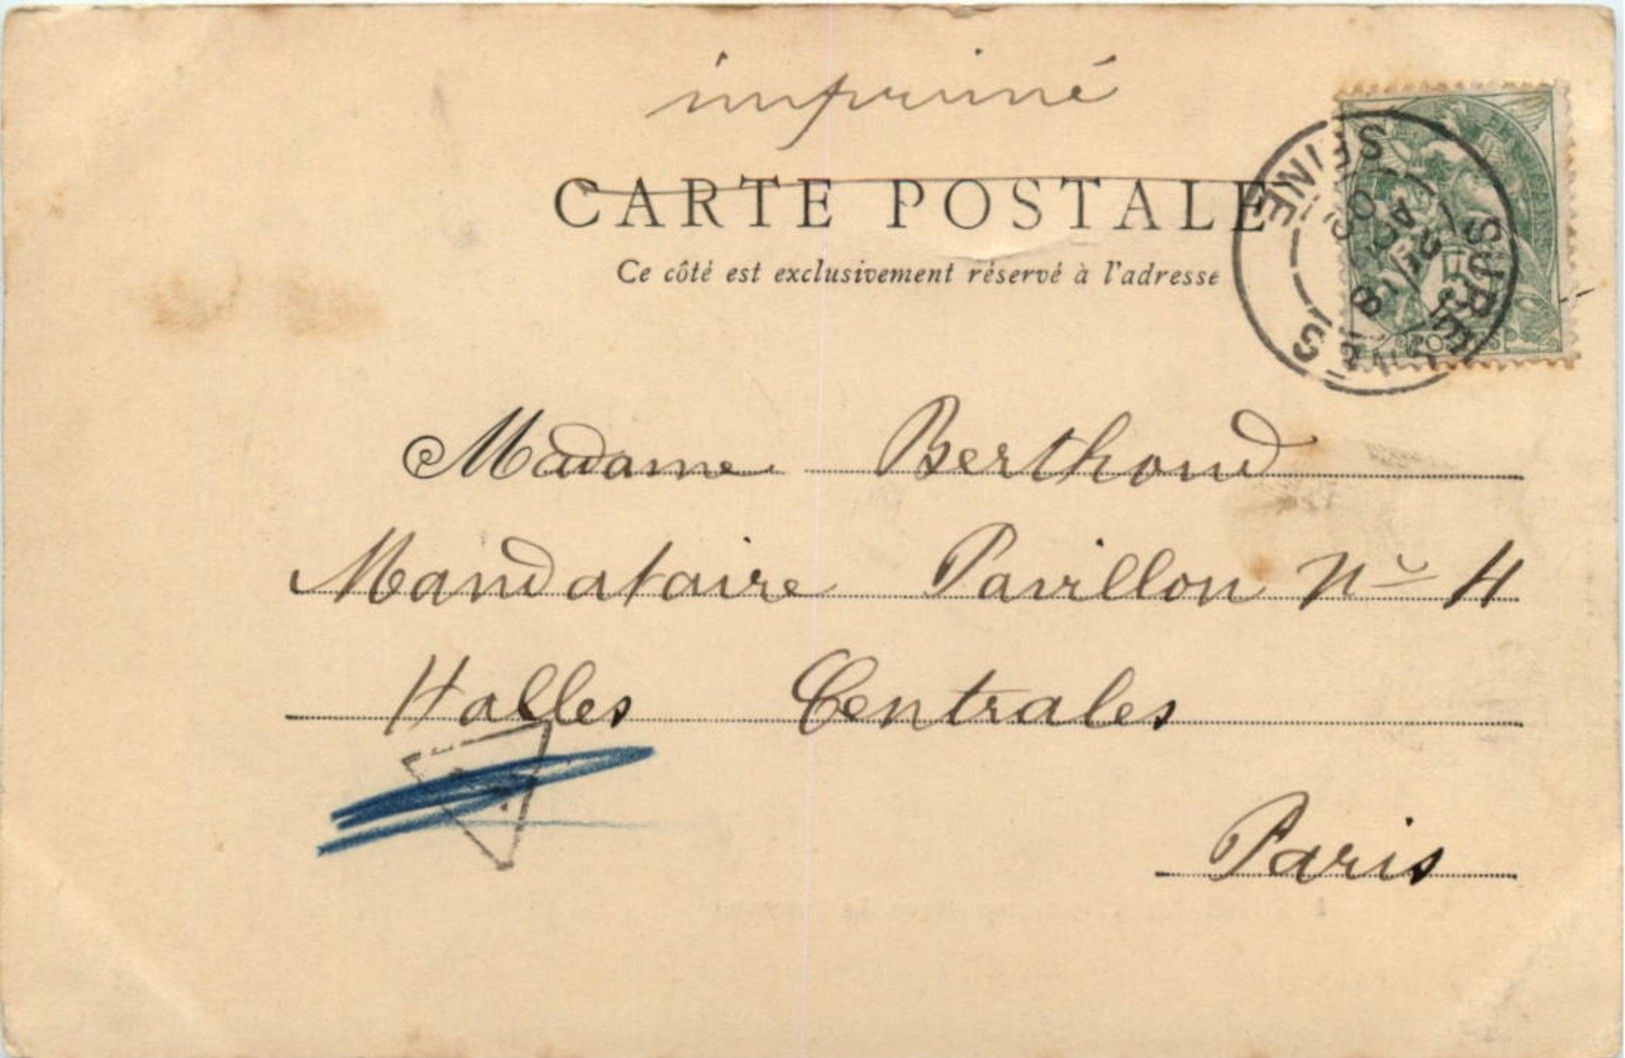 imprimé
CARTE POSTALE
Ce côté est exclusivement réservé à l'adresse
SURESNES
SEINE
Madame Berthoud
Mandataire Pavillon No 4
Halles Centrales
Paris